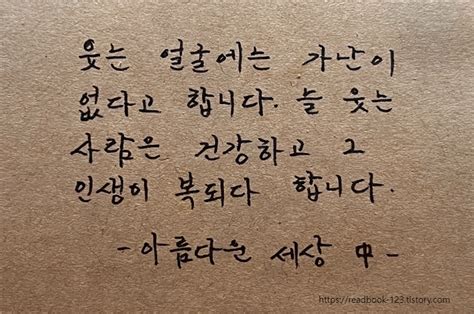 웃는 얼굴에는 가난이
없다고 합니다. 늘 웃는
사람은 건강하고 그
인생이 복되다 합니다.
- 아름다운 세상 中 -
https://readbook-123.tistory.com